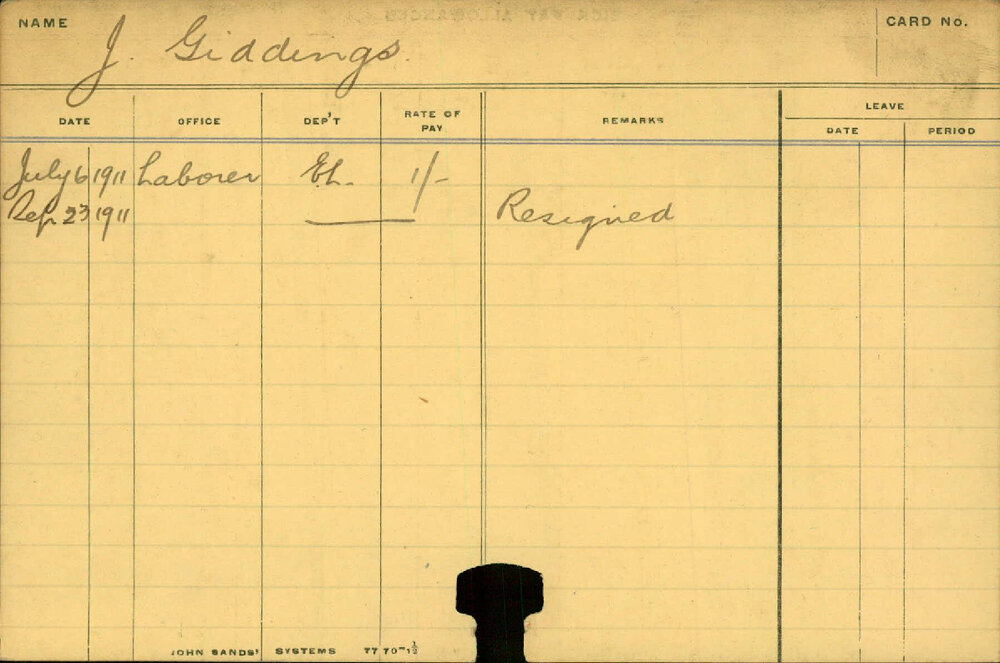 NAME J. Giddings CARD No.
DATE OFFICE DEP'T RATE OF PAY REMARKS LEAVE
DATE PERIOD
July 6 1911 Laborer E.L. 1/-
Sep. 23 1911 Resigned
JOHN SANDS' SYSTEMS 77 70